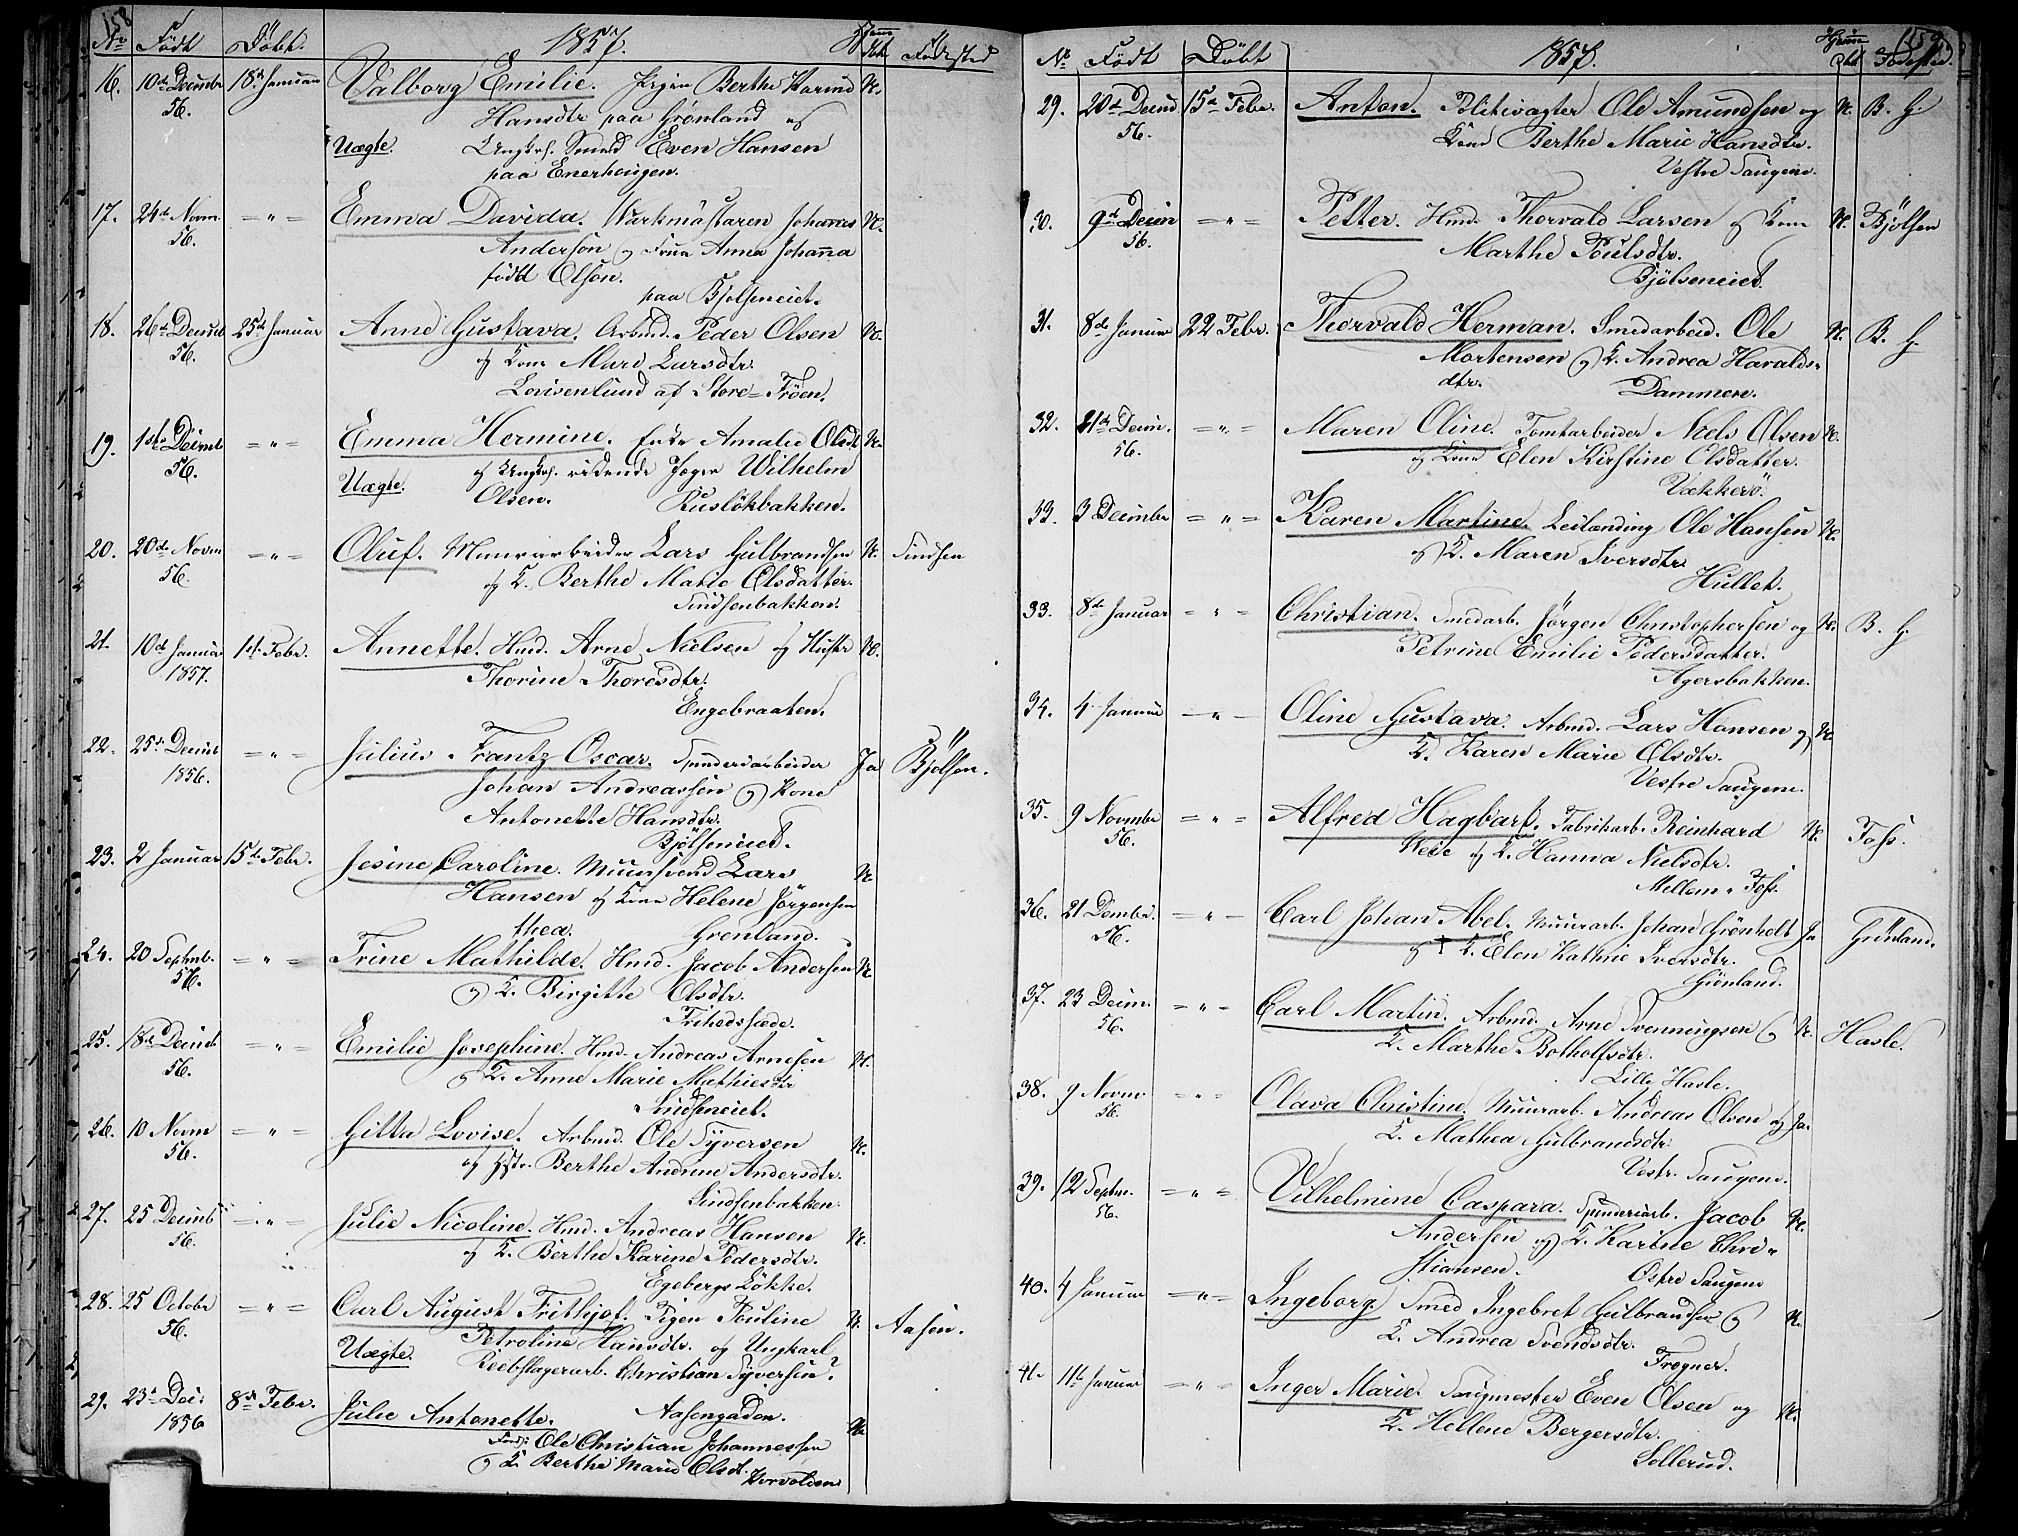 158
No Födt Döbt. 1857. Hjem dbt. Födested
16. 10de Decembr 18de Januar Valborg Emilie. Pigen Berthe Karine N.
56. Hansdtr paa Grønland og
Uægte. Ungk. Smed Even Hansen
paa Enerhougen.
17. 24de Novm. — " — Emma Davida. Johannes N.
56. Anderson og Anna Johanna
född Olson.
paa Bjølseneiet.
18. 26de Decmb 25de Januar Anne Gustava. Arbmd. Peder Olsen N.
56. og Kone Mari Larsdtr.
Lovisenlund af Store-Fröen.
19. 1ste Decmb — " — Emma Hermine. Enke Amalie Olsdt N.
56. og Ungk. ridende Jæger Wilhelm
Uægte. Olsen. Ruslökbakken.
20. 20de Novm — " — Oluf. Muurarbeider Lars Gulbrandsen N. Sindsen
56. og K. Berthe Marie Olsdatter.
Sindsenbakken.
21. 10de Januar 1st. Febr. Annette. Hmd. Arne Nielsen og Hustr N.
1857. Thorine Thoresdtr.
Engebraaten.
22. 25de Decmb — " — Julius Frantz Oscar. Ja Bjölsen.
1856. Johan Andreassen og Kone
Antonette Hansdtr.
Bjölseneiet.
23. 2 Januar 15de Febr. Jesine Caroline. Muursvend Lars N.
Hansen og Kone Helene Jörgensen
thea. Grönland.
24. 20 Septmb. — " — Trine Mathilde. Hmd. Jacob Andersen N.
56. og K. Birgitte Olsdtr.
Frihedssæde.
25. 18de Decmb — " — Emilie Josephine. Hmd. Andreas Arnesen N.
56. og K. Anne Marie Mathiesdtr
Sindseneiet.
26. 10 Novm — " — Gitta Lovise. Arbmd. Ole Syversen N.
56. og Hstr. Berthe Andrine Andersdtr.
Sindsenbakken.
27. 25 Decmb — " — Julie Nicoline. Hmd. Andreas Hansen N.
56. og K. Berthe Karine Pedersdtr.
Egebergs Lökke.
28. 25 Octobr — " — Carl August Frithjof. Pigen Pouline N. Aasen.
56. Petroline Hansdtr. og Ungkarl
Uægte. Reebslagerarb. Christian Syversen?
Aasengaden.
29. 23de Dec. 8de Febr. Julie Antonette. N.
1856 Ole Christian Johannessen
og K. Berthe Marie Olsdt.
159
No Födt Döbt 1857. Hjem dbt Födested.
29. 20de Decmb 15de Febr. Anton. Politivagter Ole Amundsen og N. B. G.
56. Kone Berthe Marie Hansdtr.
Vestre Saugene.
30. 9de Decm — " — Petter. Hmd. Thorvald Larsen og Kone N. Bjölsen
56. Marthe Poulsdtr.
Bjölseneiet.
31. 8de Januar 22 Febr. Thorvald Herman. Smedarbeid. Ole N. B. G.
Mortensen og K. Andrea Haralds-
dtr. Dammen.
32. 21de Decm. — " — Maren Oline. Tomtarbeider Niels Olsen N.
56. og Kone Elen Kirstine Olsdatter.
Vækkerö.
33. 3 Decembr — " — Karen Martine. Leilænding Ole Hansen N.
og K. Maren Iversdtr.
Hullet.
33. 8de Januar — " — Christian. Smedarb. Jörgen Christophersen og N. B. G.
Petrine Emilie Pedersdatter.
Agersbakken.
34. 4 Januar — " — Oline Gustava. Arbmd. Lars Hansen og N.
K. Karen Marie Olsdtr.
Vestre Saugene.
35. 9 Novmbr — " — Alfred Hagbart. Fabrikarb. Reinhard N. Foss.
56. og K. Hanna Nielsdtr.
Mellem-Foss.
36. 21 Dembr. — " — Carl Johan Abel. Muurarb. Johan Grönholt Ja Grönland.
56. og † K. Elen Kathrie Iversdtr.
Grönland.
37. 23 Decm. — " — Carl Martin. Arbmd. Arne Svenningsen og N. Hasle.
56. K. Marthe Botholfsdtr.
Lille Hasle.
38. 9 Novm. — " — Olava Christine. Muurarb. Andreas Olsen og Ja.
56. K. Mathea Gulbrandsdtr.
Vestr. Saugene.
39. 12 Septm. — " — Vilhelmine Caspara. Spinneriarb. Jacob N.
56. Andersen og K. Karine Chri-
stiansen. Östre Saugene
40. 4 Januar — " — Ingeborg. Smed Ingebret Gulbrandsen og N.
K. Andrea Svendsdtr.
Frogner.
41. 11te Januar — " — Inger Marie. Saugmester Even Olsen og N.
K. Hellene Bergersdtr.
Sollerud.